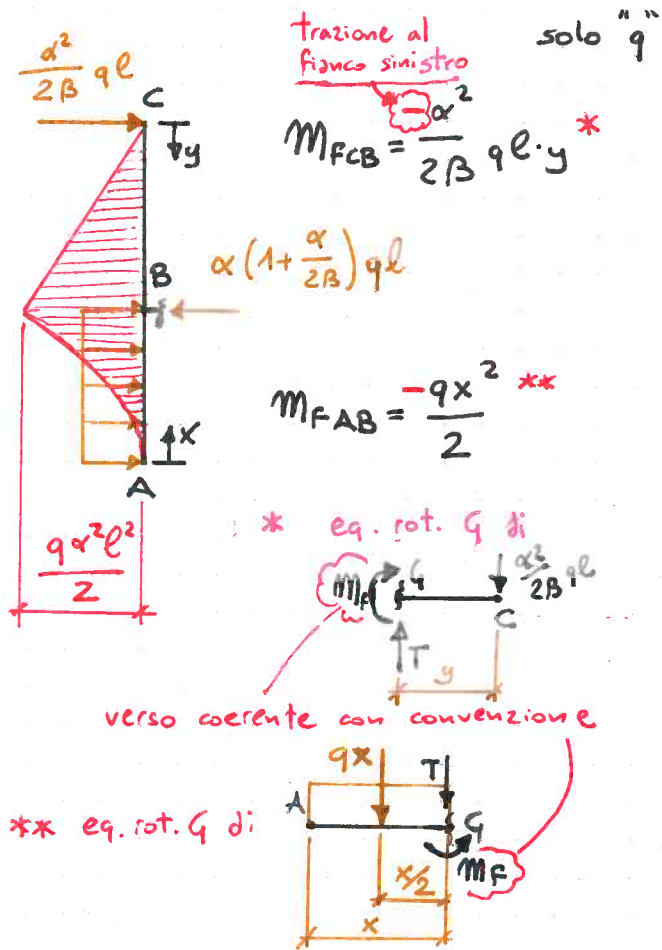 trazione al
fianco sinistro
solo "q"
α²/2β qℓ
C
y
M_FCB = -α²/2β qℓ·y *
B
α(1+α/2β)qℓ
M_FAB = -qx²/2 **
x
A
qα²ℓ²/2
* eq. rot. G di
M_F G α²/2β qℓ
C
T
y
verso coerente con convenzione
qx T
** eq. rot. G di A G
M_F
x/2
x